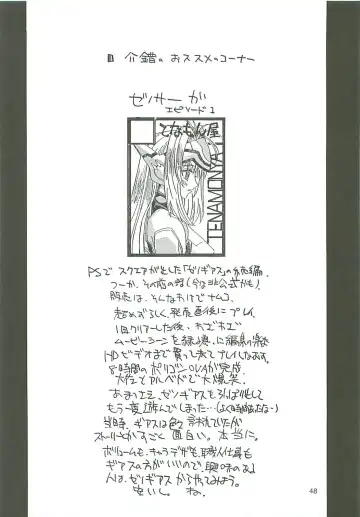 介錯の おススメのコーナー
ゼノサーガ
エピソード1
となもん屋
TENAMONYA
PSで スクエアがだした「ゼノギアス」の続編。
つーか、その前の話(今は非公式かも)
販売は、そんなわけで ナムコ。
超めずらしく、発売直後にプレイ
1回クリアーした後、わざわざ
ムービーシーンを綺麗に編集の為
HDビデオまで買って来てプレイしなおす。
8時間のポリゴンOVAが完成。
アルベドで大爆笑。
あまつさえ、ゼノギアスをひっぱり出して
もう一度遊んでしまった…(よく時間あったな〜)
当時、ギアスは色々 言われていたが
ストーリーとかすごく 面白い。本当に。
ボリュームも、キャラデザも、職人仕事も
ギアスの方がいいので、興味のある
人は、ゼノギアス からやってみよう。
ね。
48